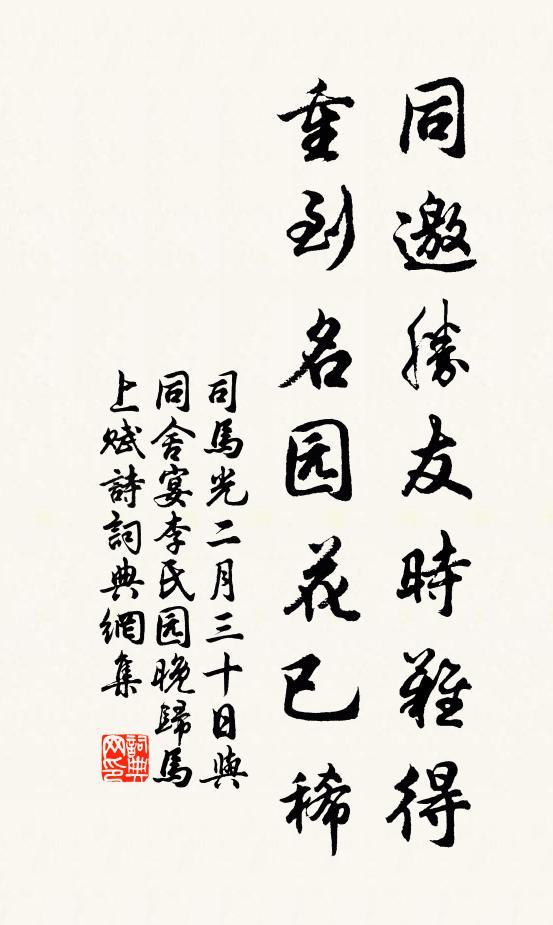 同邀勝友時難得
重到名园花已稀
司馬光二月三十日與
同舍宴李氏园晚歸馬
上赋詩詞典網集
詞典网印